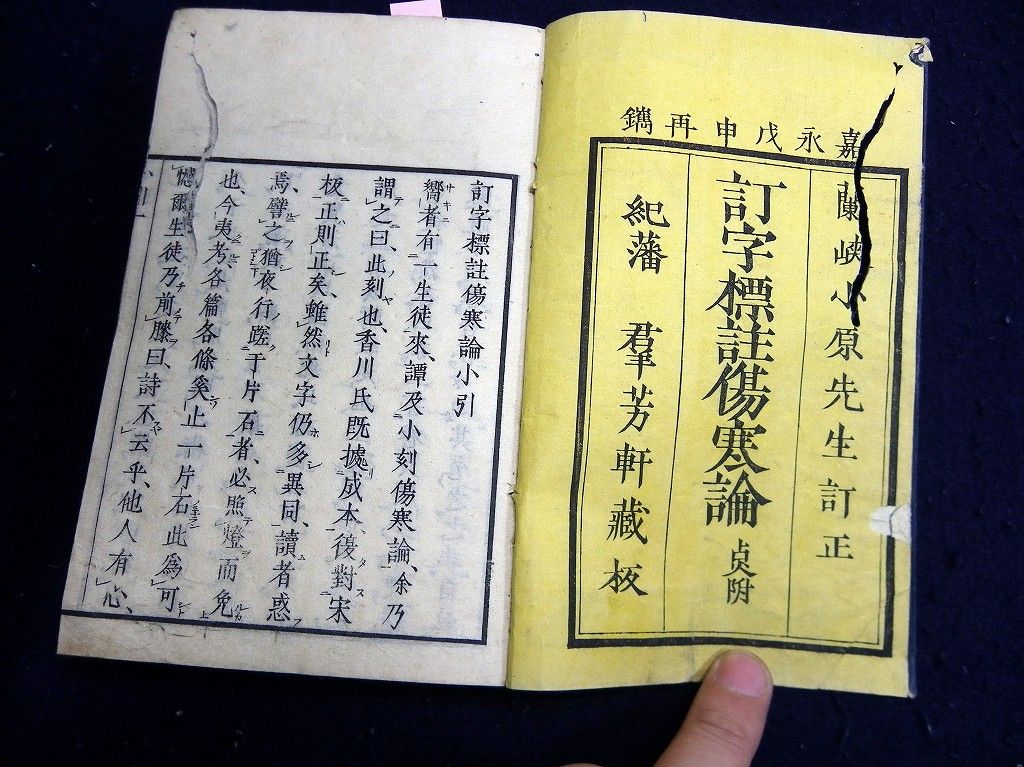 嘉永戊申再鐫
蘭峡小原先生訂正
訂字標註傷寒論 点附
紀藩 羣芳軒藏板
訂字標註傷寒論小引
嚮者有一生徒來、譚及小刻傷寒論、余乃
謂之曰、此刻也、香川氏既據成本、復對宋
板、正則正矣、雖然文字仍多異同、讀者惑
焉、譬之猶夜行蹉于片石者、必照燈而免
也、今夷考、各篇各條奚止一片石此為可
憾爾生徒乃前膝曰、詩不云乎、他人有心、